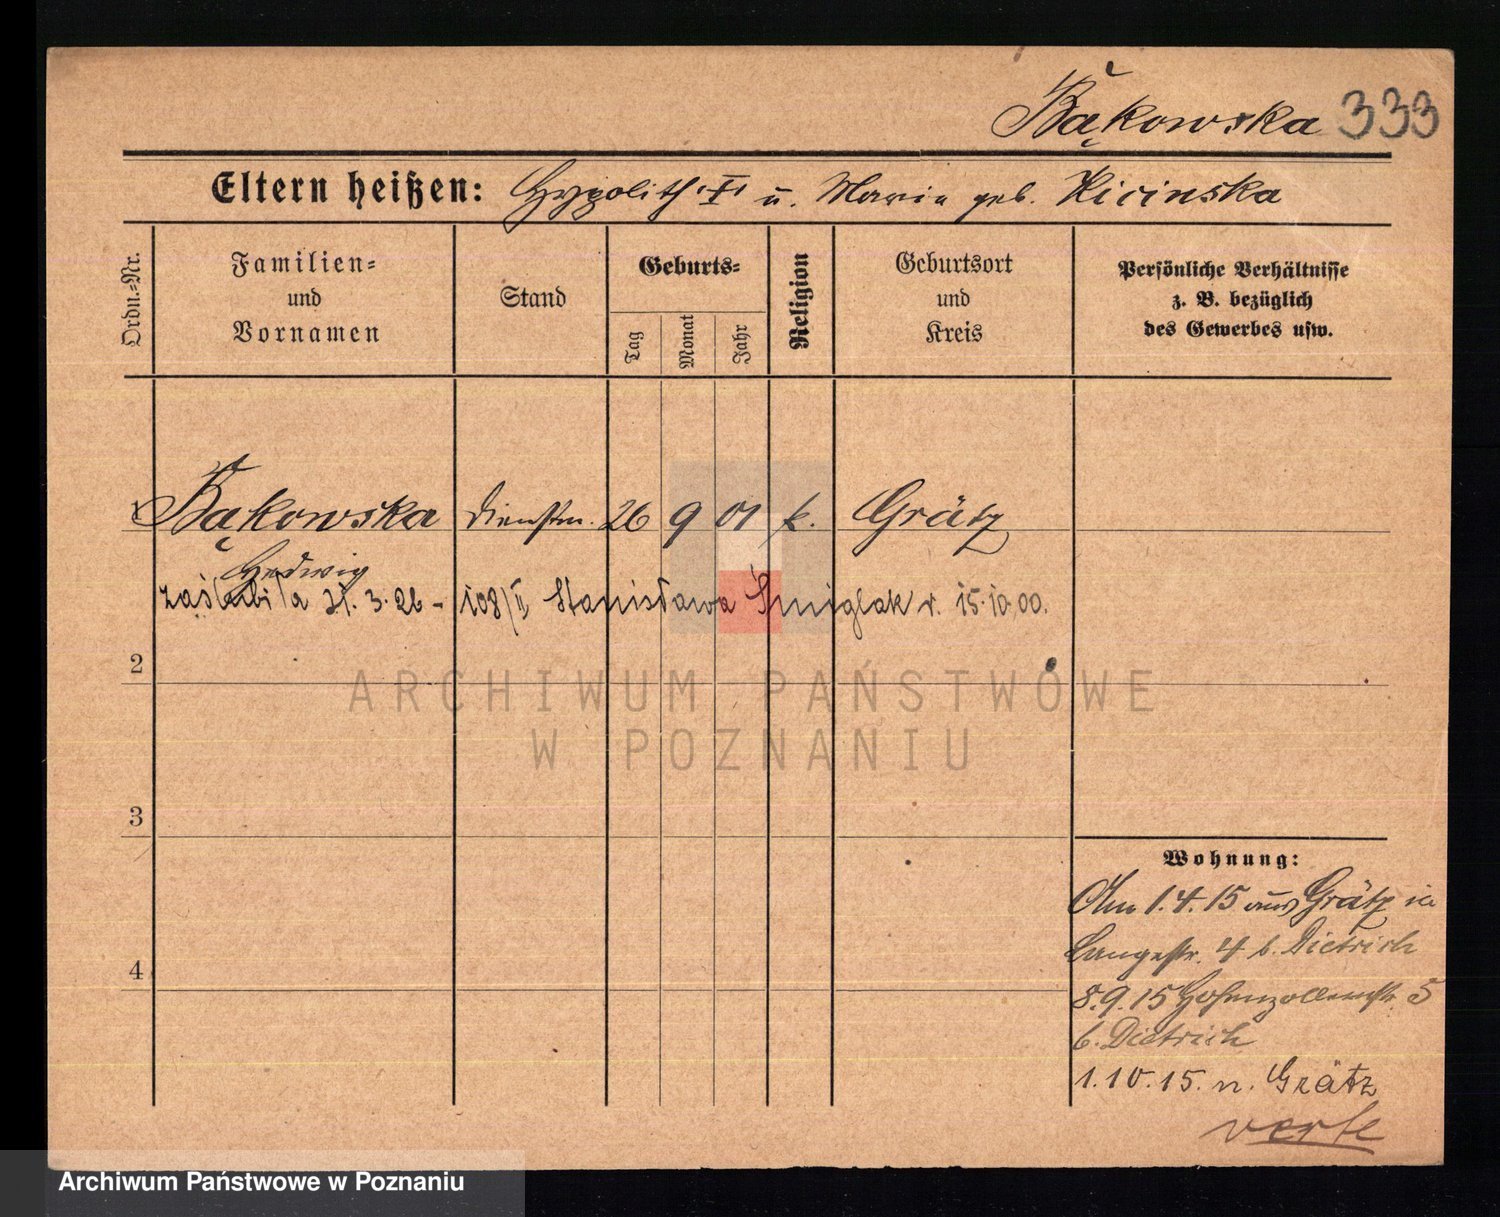 Bąkowska 333
Eltern heißen: Hypolith "†" u. Marie geb. Kicinska
Ordn.-Nr.
Familien-
und
Vornamen
Stand
Geburts-
Tag
Monat
Jahr
Religion
Geburtsort
und
Kreis
Persönliche Verhältnisse
z. B. bezüglich
des Gewerbes usw.
1 Bąkowska Dienstm. 26 9 01 k. Grätz
Hedwig
zaślubiła 21. 3. 26 - 108/II Stanisława Śmiglak r. 15.10.00.
2
3
4
Wohnung:
Am 1.4.15 aus Grätz in
Langestr. 4 b. Dietrich
8.9.15 Hohenzollernstr. 5
b. Dietrich
1.10.15. n. Grätz
verte
ARCHIWUM PAŃSTWOWE
W POZNANIU
Archiwum Państwowe w Poznaniu